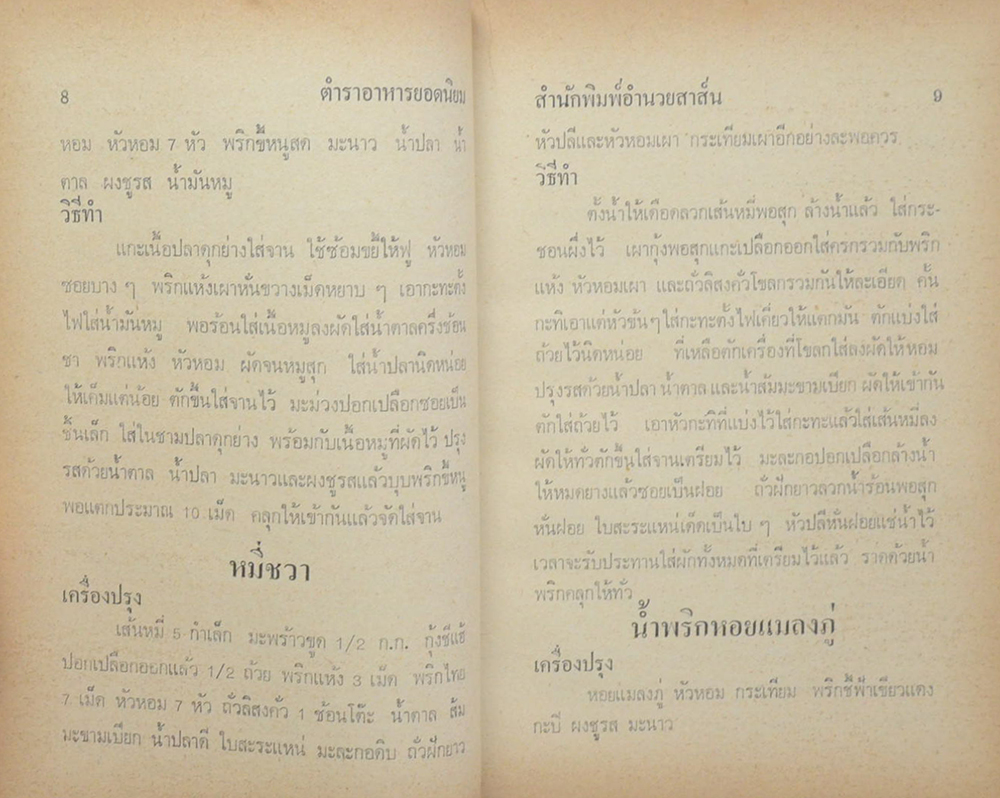 8 ตำราอาหารยอดนิยม
หอม หัวหอม 7 หัว พริกขี้หนูสด มะนาว น้ำปลา น้ำ
ตาล ผงชูรส น้ำมันหมู
วิธีทำ
แกะเนื้อปลาดุกย่างใส่จาน ใช้ซ้อมขยี้ให้ฟู หัวหอม
ซอยบาง ๆ พริกแห้งเผาหั่นขวางเม็ดหยาบ ๆ เอากะทะตั้ง
ไฟใส่น้ำมันหมู พอร้อนใส่เนื้อหมูลงผัดใส่น้ำตาลครึ่งช้อน
ชา พริกแห้ง หัวหอม ผัดจนหมูสุก ใส่น้ำปลานิดหน่อย
ให้เค็มแต่น้อย ตักขึ้นใส่จานไว้ มะม่วงปอกเปลือกซอยเป็น
ชิ้นเล็ก ใส่ในชามปลาดุกย่าง พร้อมกับเนื้อหมูที่ผัดไว้ ปรุง
รสด้วยน้ำตาล น้ำปลา มะนาวและผงชูรสแล้วบุบพริกขี้หนู
พอแตกประมาณ 10 เม็ด คลุกให้เข้ากันแล้วจัดใส่จาน
หมี่ชวา
เครื่องปรุง
เส้นหมี่ 5 กำเล็ก มะพร้าวขูด 1/2 ก.ก. กุ้งชีแฮ้
ปอกเปลือกออกแล้ว 1/2 ถ้วย พริกแห้ง 3 เม็ด พริกไทย
7 เม็ด หัวหอม 7 หัว ถั่วลิสงคั่ว 1 ช้อนโต๊ะ น้ำตาล ส้ม
มะขามเปียก น้ำปลาดี ใบสะระแหน่ มะละกอดิบ ถั่วฝักยาว
สำนักพิมพ์อำนวยสาส์น 9
หัวปลีและหัวหอมเผา กระเทียมเผาอีกอย่างละพอควร
วิธีทำ
ตั้งน้ำให้เดือดลวกเส้นหมี่พอสุก ล้างน้ำแล้ว ใส่กระ-
ชอนผึ่งไว้ เผากุ้งพอสุกแกะเปลือกออกใส่ครกรวมกับพริก
แห้ง หัวหอมเผา และถั่วลิสงคั่วโขลกรวมกันให้ละเอียด คั้น
กะทิเอาแต่หัวข้น ๆ ใส่กะทะตั้งไฟเคี่ยวให้แตกมัน ตักแบ่งใส่
ถ้วยไว้นิดหน่อย ที่เหลือตักเครื่องที่โขลกใส่ลงผัดให้หอม
ปรุงรสด้วยน้ำปลา น้ำตาล และน้ำส้มมะขามเปียก ผัดให้เข้ากัน
ตักใส่ถ้วยไว้ เอาหัวกะทิที่แบ่งไว้ใส่กะทะแล้วใส่เส้นหมี่ลง
ผัดให้ทั่วตักขึ้นใส่จานเตรียมไว้ มะละกอปอกเปลือกล้างน้ำ
ให้หมดยางแล้วซอยเป็นฝอย ถั่วฝักยาวลวกน้ำร้อนพอสุก
หั่นฝอย ใบสะระแหน่เด็ดเป็นใบ ๆ หัวปลีหั่นฝอยแช่น้ำไว้
เวลาจะรับประทานใส่ผักทั้งหมดที่เตรียมไว้แล้ว ราดด้วยน้ำ
พริกคลุกให้ทั่ว
น้ำพริกหอยแมลงภู่
เครื่องปรุง
หอยแมลงภู่ หัวหอม กระเทียม พริกชี้ฟ้าเขียวแดง
กะปิ ผงชูรส มะนาว